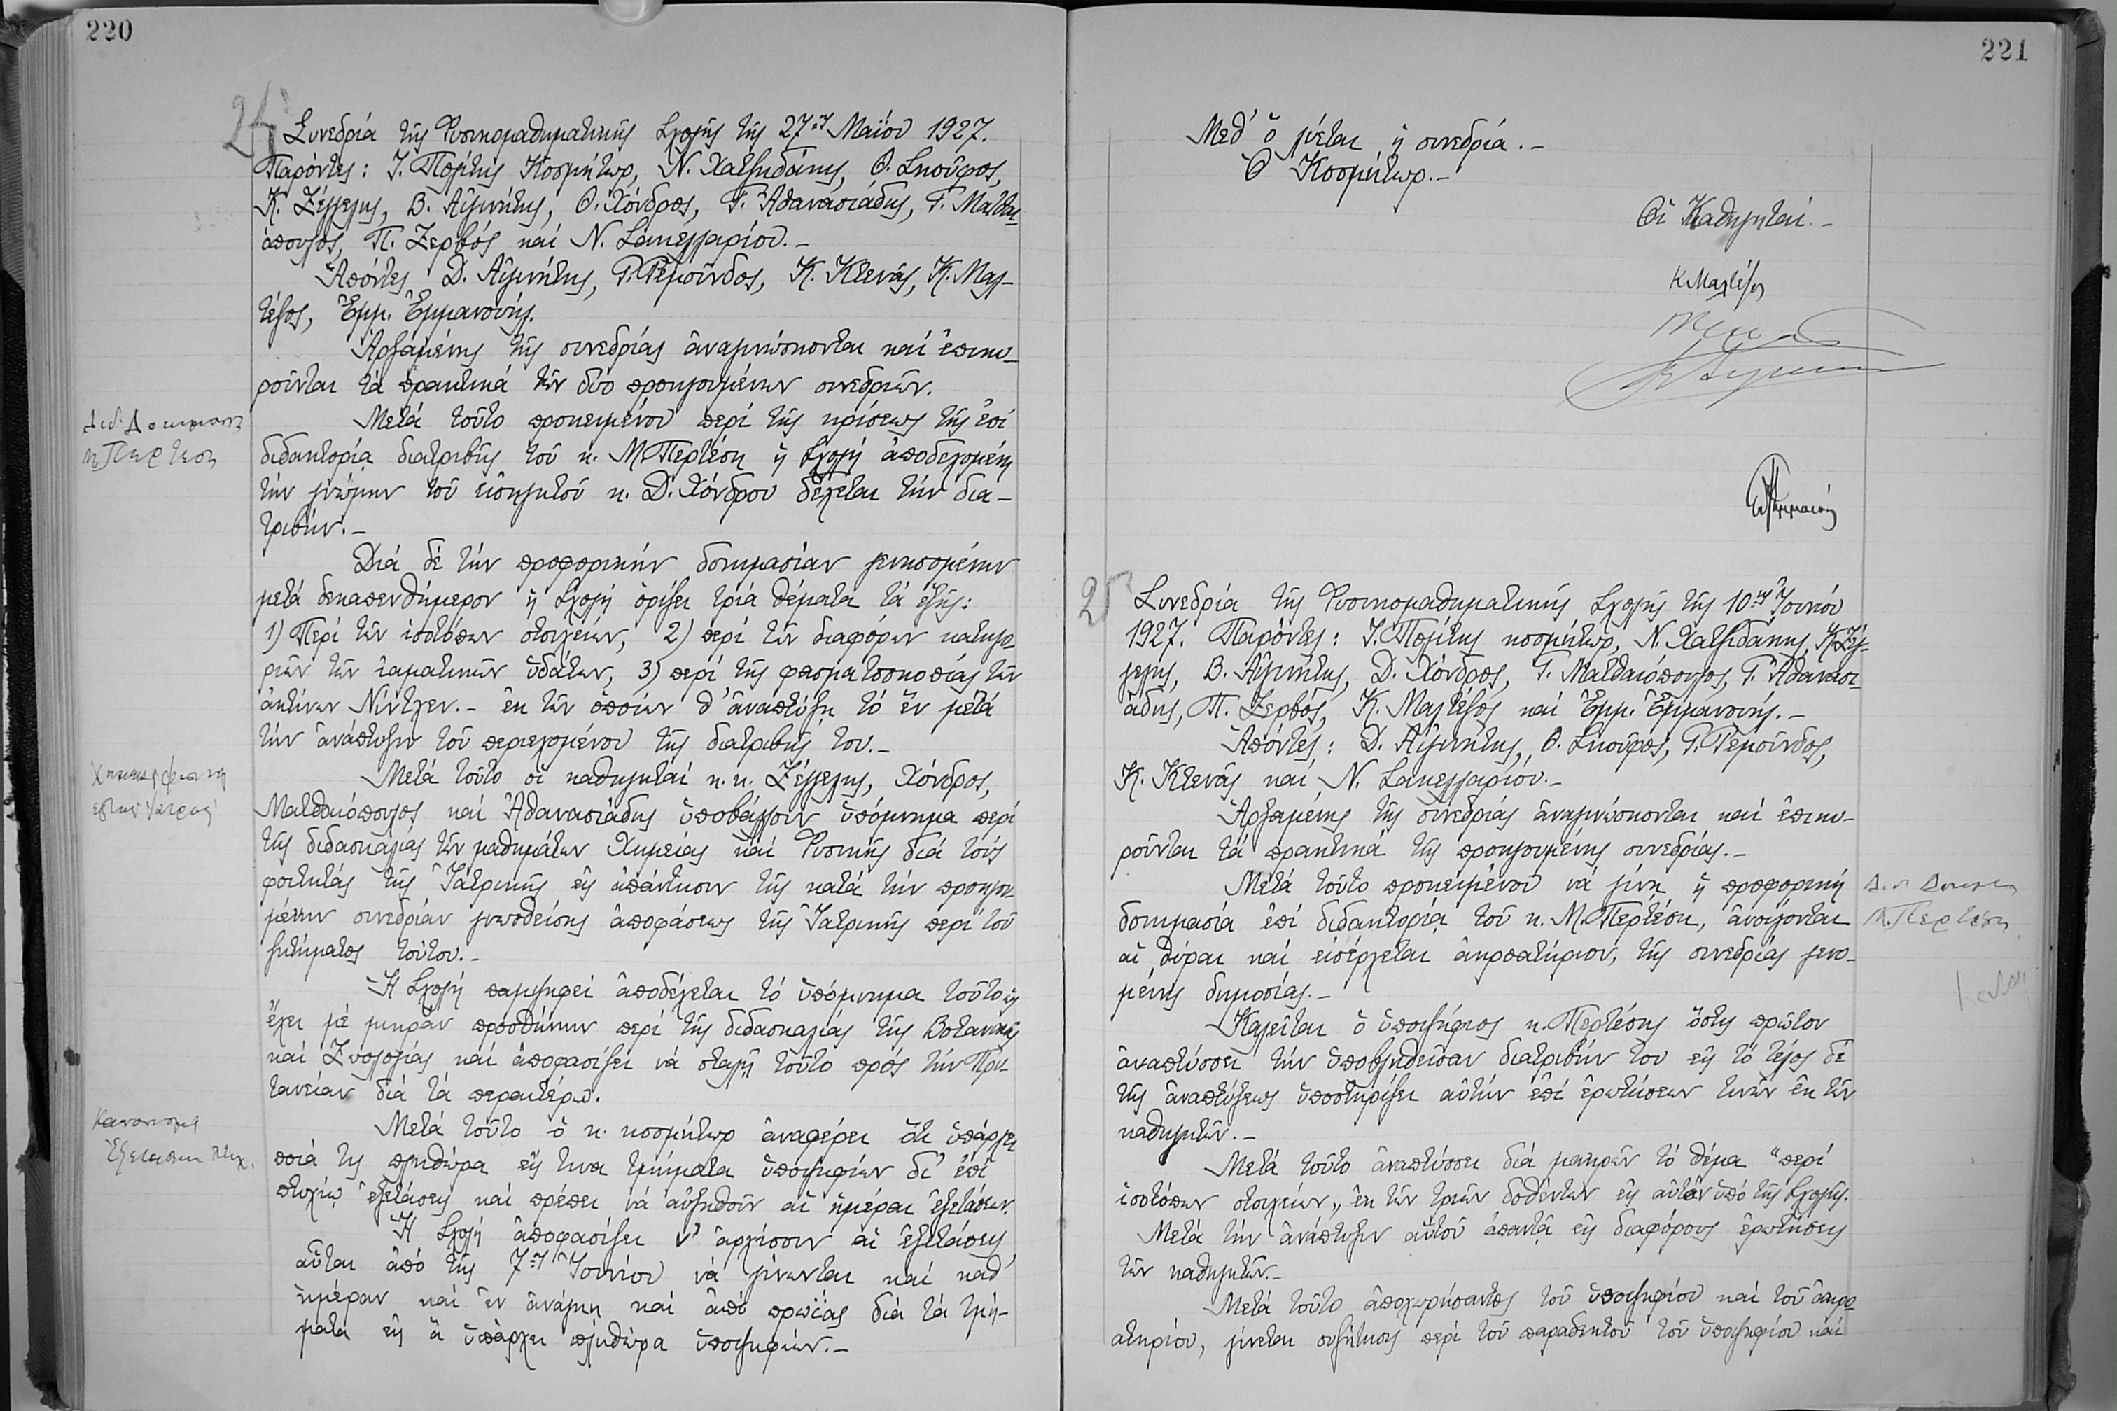 220
24
Συνεδρία τῆς Φυσικομαθηματικῆς Σχολῆς τῆς 27ης Μαΐου 1927.
Παρόντες: Ἰ. Πολίτης Κοσμήτωρ, Ν. Χατζηδάκης, Θ. Σκοῦφος,
Κ. Ζέγγελης, Β. Αἰγινήτης, Θ. Χόνδρος, Γ. Ἀθανασιάδης, Γ. Ματθαι-
όπουλος, Π. Ζερβός καί Ν. Σακελλαρίου.-
Ἀπόντες Δ. Αἰγινήτης, Γ. Ῥεμοῦνδος, Κ. Κτενᾶς, Κ. Μαλ-
τέζος, Ἐμμ. Ἐμμανουήλ.
Ἀρξαμένης τῆς συνεδρίας ἀναγινώσκονται καί ἐπικυ-
ροῦνται τά πρακτικά τῶν δύο προηγουμένων συνεδριῶν.
Μετά τοῦτο προκειμένου περί τῆς κρίσεως τῆς ἐπί
διδακτορίᾳ διατριβῆς τοῦ κ. Μ Περτέση ἡ Σχολή ἀποδεχομένη
τήν γνώμην τοῦ εἰσηγητοῦ κ. Δ. Χόνδρου δέχεται τήν δια-
τριβήν.-
Διά δέ τήν προφορικήν δοκιμασίαν γενησομένην
μετά δεκαπενθήμερον ἡ Σχολή ὁρίζει τρία θέματα τά ἑξῆς:
1) Περί τῶν ἰσοτόπων στοιχείων, 2) περί τῶν διαφόρων κατηγο-
ριῶν τῶν ἰαματικῶν ὑδάτων, 3) περί τῆς φασματοσκοπίας τῶν
ἀκτίνων Νίντγεν.- ἐκ τῶν ὁποίων θ' ἀναπτύξῃ τό ἕν μετά
τήν ἀνάπτυξιν τοῦ περιεχομένου τῆς διατριβῆς του.-
Μετά τοῦτο οἱ καθηγηταί κ.κ. Ζέγγελης, Χόνδρος,
Ματθαιόπουλος καί Ἀθανασιάδης ὑποβάλλουν ὑπόμνημα περί
τῆς διδασκαλίας τῶν μαθημάτων Χημείας καί Φυσικῆς διά τούς
φοιτητάς τῆς Ἰατρικῆς εἰς ἀπάντησιν τῆς κατά τήν προηγου-
μένην συνεδρίαν γνωσθείσης ἀποφάσεως τῆς Ἰατρικῆς περί τοῦ
ζητήματος τούτου.-
Ἡ Σχολή παμψηφεί ἀποδέχεται τό ὑπόμνημα τοῦτο ὡς
ἔχει μέ μικράν προσθήκην περί τῆς διδασκαλίας τῆς Βοτανικῆς
καί Ζωολογίας καί ἀποφασίζει νά σταλῇ τοῦτο πρός τήν Πρυ-
τανείαν διά τά περαιτέρω.
Μετά τοῦτο ὁ κ. κοσμήτωρ ἀναφέρει ὅτι ὑπάρχει
ποιά τις πληθώρα εἰς τινα τμήματα ὑποψηφίων δι' ἐπί
πτυχίῳ ἐξετάσεις καί πρέπει νά αὐξηθοῦν αἱ ἡμέραι ἐξετάσεων.
Ἡ Σχολή ἀποφασίζει ν' ἀρχίσουν αἱ ἐξετάσεις
αὗται ἀπό τῆς 7ης Ἰουνίου νά γίνωνται καί καθ'
ἡμέραν καί ἐν ἀνάγκῃ καί ἀπό πρωΐας διά τά τμή-
ματα εἰς ἅ ὑπάρχει πληθώρα ὑποψηφίων.-
Μ Περτεση
Κανονισμός
221
Μεθ' ὅ λύεται ἡ συνεδρία.-
Ὁ Κοσμήτωρ.-
Οἱ Καθηγηταί.-
Κ Μαλτέζος
25
Συνεδρία τῆς Φυσικομαθηματικῆς Σχολῆς τῆς 10ης Ἰουνίου
1927. Παρόντες: Ἰ. Πολίτης κοσμήτωρ, Ν. Χατζιδάκης, Κ. Ζέγ-
γελης, Β. Αἰγινήτης, Δ. Χόνδρος, Γ. Ματθαιόπουλος, Γ. Ἀθανασι-
άδης, Π. Ζερβός, Κ. Μαλτέζος καί Ἐμμ. Ἐμμανουήλ.-
Ἀπόντες: Δ. Αἰγινήτης, Θ. Σκοῦφος, Γ. Ῥεμοῦνδος,
Κ. Κτενᾶς καί Ν. Σακελλαρίου.-
Ἀρξαμένης τῆς συνεδρίας ἀναγινώσκονται καί ἐπικυ-
ροῦνται τά πρακτικά τῆς προηγουμένης συνεδρίας.-
Μετά τοῦτο προκειμένου νά γίνῃ ἡ προφορική
δοκιμασία ἐπί διδακτορίᾳ τοῦ κ. Μ. Περτέση, ἀνοίγονται
αἱ θύραι καί εἰσέρχεται ἀκροατήριον, τῆς συνεδρίας γενο-
μένης δημοσίας.-
Καλεῖται ὁ ὑποψήφιος κ. Περτέσης ὅστις πρῶτον
ἀναπτύσσει τήν ὑποβληθεῖσαν διατριβήν του εἰς τό τέλος δέ
τῆς ἀναπτύξεως ὑποστηρίζει αὐτήν ἐπί ἐρωτήσεων τινῶν ἐκ τῶν
καθηγητῶν.-
Μετά τοῦτο ἀναπτύσσει διά μακρῶν τό θέμα "περί
ἰσοτόπων στοιχείων„ ἐκ τῶν τριῶν δοθέντων εἰς αὐτόν ὑπό τῆς Σχολῆς.
Μετά τήν ἀνάπτυξιν αὐτοῦ ἀπαντᾷ εἰς διαφόρους ἐρωτήσεις
τῶν καθηγητῶν.-
Μετά τοῦτο ἀποχωρήσαντος τοῦ ὑποψηφίου καί τοῦ ἀκρο-
ατηρίου, γίνεται συζήτησις περί τοῦ παραδεκτοῦ τοῦ ὑποψηφίου καί
Μ. Περτέση